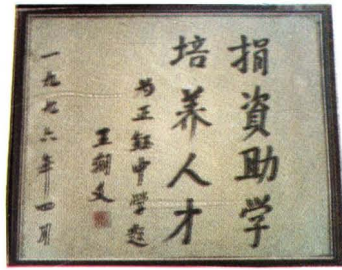 捐資助学
培养人才
为正鈺中学题
王翔文
一九九六年四月